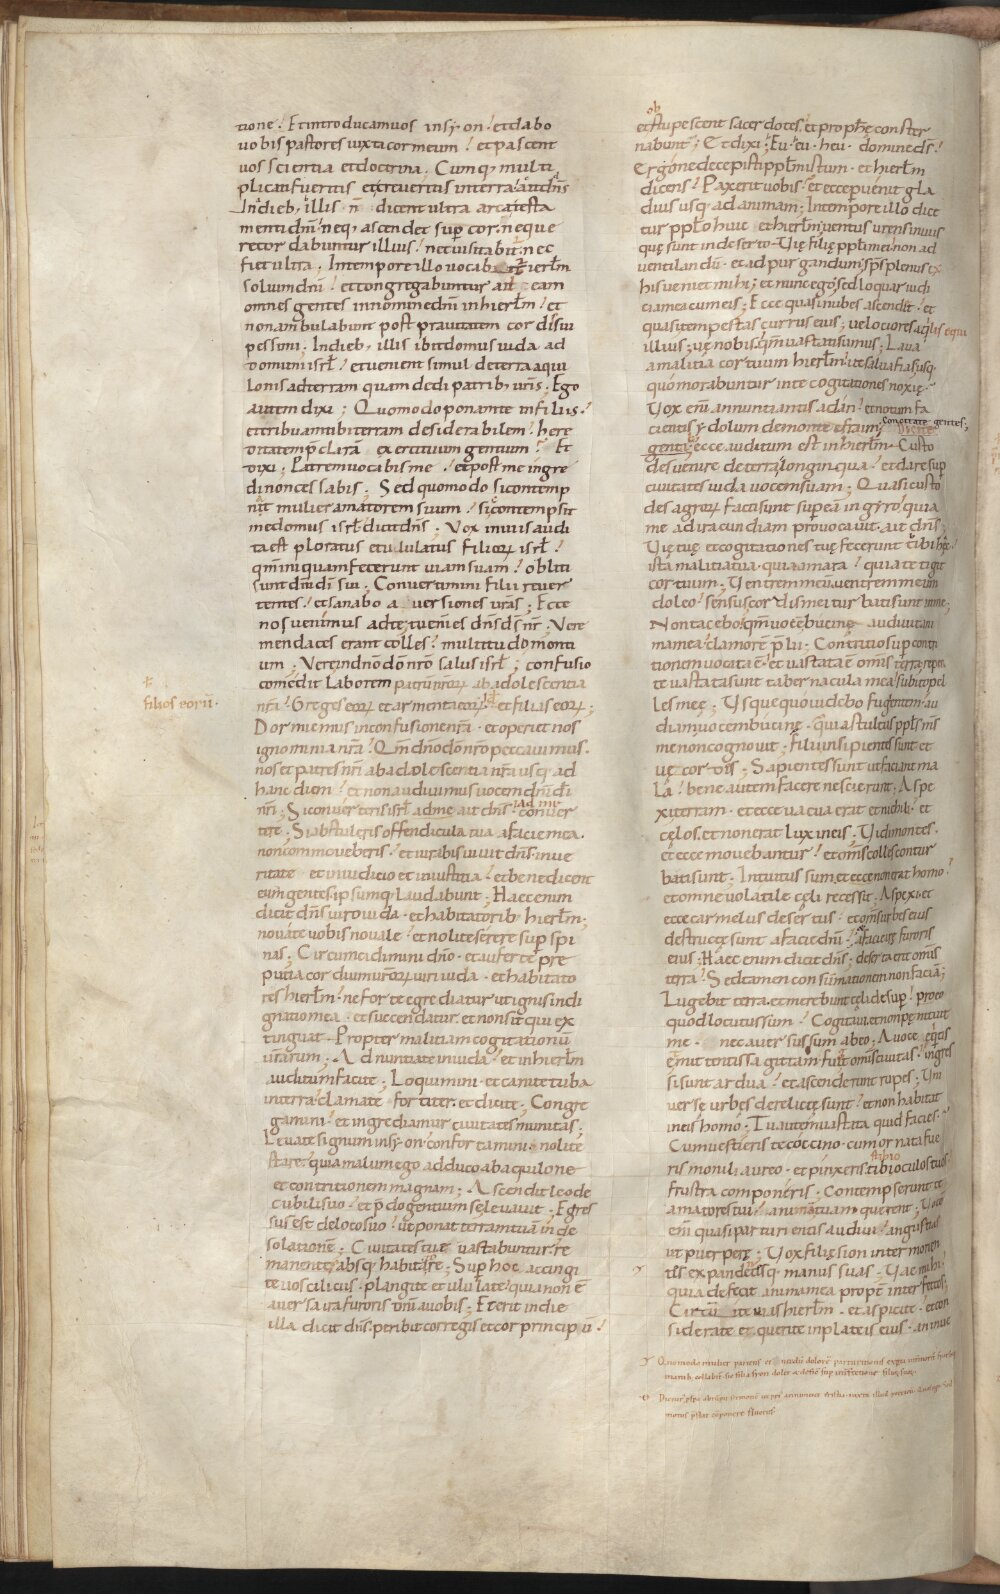 tione ; Et introducam uos in syon ; et dabo
uobis pastores iuxta cor meum ; et pascent
uos scientia et doctrina ; Cumq; multi
plicati fueritis et creueritis in terra ; ait dn̄s
In dieb; illis n̄ dicent ultra arca testa
menti dn̄i ; neq; ascendet sup̄ cor ; neque
recordabuntur illius ; nec uisitabit ; nec
fiet ultra ; In tempore illo uocab hierłm
solium dn̄i ; et congregabuntur ad eam
omnes gentes in nomine dn̄i in hierłm ; et
non ambulabunt post prauitatem cordis sui
pessimi ; In dieb; illis ibit domus iuda ad
domum isrł ; et uenient simul de terra aqui
lonis ad terram quam dedi patrib; uris ; Ego
autem dixi ; Quomodo ponam te in filiis ;
et tribuam tibi terram desiderabilem ; here
ditatem p̄clarā exercituum gentium ; Et
dixi ; Patrem uocabis me ; et post me ingre
di non cessabis ; Sed quomodo si contemp
nat mulier amatorem suum ; sic contempsit
me domus isrł dicit dn̄s ; Vox in uiis audi
ta est ploratus et ululatus filiorꝝ isrł ;
qm̄ iniquam fecerunt uiam suam ; obliti
sunt dn̄i dī sui ; Conuertimini filii reuer
tentes ; et sanabo a uersiones urās ; Ecce
nos uenimus ad te ; tu enī es dn̄s ds nr̄ ; Vere
mendaces erant colles ; multitudo monti
um ; Vere in dn̄o dō nrō salus isrł ; confusio
comedit laborem patrū nrorꝝ ab adolescentia
nrā ; Greges eorꝝ et armenta eorꝝ ; et filias eorꝝ ;
+
filios eorū.
Dormiemus in confusione nrā ; et operiet nos
ignominia nrā ; Qm̄ dn̄o dō nrō peccauimus ;
nos et patres nrī ab adolescentia nrā usq; ad
hanc diem ; et non audiuimus uocem dn̄i dī
nrī ; Si conuerteris isrł ad me ait dn̄s ; ad me conuer
tere ; Si abstuleris offendicula tua a facie mea ;
non commoueberis ; et iurabis uiuit dn̄s ; in ue
ritate et in iudicio et in iustitia ; et benedicent
eum gentes ; ipsumq; laudabunt ; Haec enim
dicit dn̄s uiro iuda ; et habitatorib; hierłm ;
nouate uobis nouale ; et nolite serere sup̄ spi
nas ; Circumcidimini dn̄o ; et auferte pre
putia cordium urorꝝ ; uiri iuda et habitato
res hierłm ; ne forte egrediatur ut ignis indi
gnatio mea ; et succendatur et non sit qui ex
tinguat ; Propter malitiam cogitationū
urārum ; Adnuntiate in iuda ; et in hierłm
auditum facite ; Loquimini et canite tuba
in terra ; clamate fortiter et dicite ; Congre
gamini ; et ingrediamur ciuitates munitas ;
Leuate signum in syon ; confortamini ; nolite
stare ; quia malum ego adduco ab aquilone
et contritionem magnam ; Ascendit leo de
cubili suo ; et p̄do gentium se leuauit ; Egres
sus est de loco suo ; ut ponat terram tuā in de
solationē ; Ciuitates tuę uastabuntur ; re
manentes absq; habitatore ; Sup̄ hoc accingi
te uos ciliciis ; plangite et ululate ; quia non ē
auersa ira furoris dn̄i a uobis ; Et erit in die
illa dicit dn̄s ; peribit cor regis et cor principū ;
ob
et stupescent sacerdotes ; et prophę conster
nabunt ; Et dixi ; Eu eu heu domine ds ;
Ergone decepisti ppłm istum ; et hierłm
dicens ; Pax erit uobis ; et ecce puenit gla
dius usq; ad animam ; In tempore illo dice
tur ppło huic et hierłm ; uentus urens in uiis
quę sunt in deserto uię filię ppłi mei ; non ad
uentilandū et ad purgandum ; sps plenus ex
his ueniet mihi ; et nunc ego sed loquar iudi
cia mea cum eis ; Ecce quasi nubes ascendet ; et
quasi tempestas currus eius ; uelociores aquilis equi
illius ; uę nobis qm̄ uastati sumus ; Laua
a malitia cor tuum hierłm ; ut salua fias ; usq;
quo morabuntur in te cogitationes noxię ;
Vox enī annuntiantis a dan ; et notum fa
cientis ydolum de monte efraim ; Concitate gentes ;
gentib; ecce auditum est in hierłm ; Custo
des uenire de terra longinqua ; et dare sup̄
ciuitates iuda uocem suam ; Quasi custo
des agrorꝝ facti sunt sup̄ eam in gyro ; quia
me ad iracundiam prouocauit ; ait dn̄s ;
Vię tuę et cogitationes tuę fecerunt tibi hęc ;
ista malitia tua ; quia amara ; quia tetigit
cor tuum ; Ventrem meū uentrem meum
doleo ; sensus cordis mei turbati sunt in me ;
Non tacebo ; qm̄ uocē bucinę audiuit ani
ma mea ; clamorē p̄lii ; Contritio sup̄ contri
tionem uocata ē ; et uastata ē omīs terra ; repen
te uastata sunt tabernacula mea ; subito pel
les meę ; Vsquequo uidebo fugientem ; au
diam uocem bucinę ; Quia stultus ppłs ms
me non cognouit ; filii insipientes sunt et
uę cordes ; Sapientes sunt ut faciant ma
la ; bene autem facere nescierunt ; Aspe
xi terram ; et ecce uacua erat et nichili ; et
cęlos et non erat lux in eis ; Vidi montes ;
et ecce mouebantur ; et omīs colles contur
bati sunt ; Intuitus sum ; et ecce non erat homo ;
et omne uolatile cęli recessit ; Aspexi et
ecce carmelus desertus ; et omīs urbes eius
destructę sunt a facie dn̄i ; a facie irę furoris
eius ; Haec enim dicit dn̄s ; deserta erit omīs
terra ; Sed tamen consummationem non faciā ;
Lugebit terra ; et merebunt cęli desup̄ ; pro eo
quod locutus sum ; Cogitaui ; et non penituit
me ; nec auersus sum ab eo ; A uoce eq̄itis
et mittentis sagittam fugit omīs ciuitas ; ingres
si sunt ardua ; et ascenderunt rupes ; Vni
uersę urbes derelictę sunt ; et non habitat
in eis homo ; Tu autem uastata quid facies ;
Cum uestieris te coccino ; cum ornata fue
ris monili aureo ; et pinxeris stibio oculos tuos ;
frustra componeris ; Contempserunt te
amatores tui ; animam tuam querent ; Vocē
enī quasi parturientis audiui ; angustias
ut puerperę ; Vox filię sion inter morien
tes expandentisq; manus suas ; Vae mihi ;
quia defecit anima mea propt̄ interfectos ;
Circuite uias hierłm et aspicite ; et con
siderate et querite in plateis eius ; an inue
Quomodo mulier pariens et nimiū dolorē parturitionis
manib; collabit sic filia syon dolet